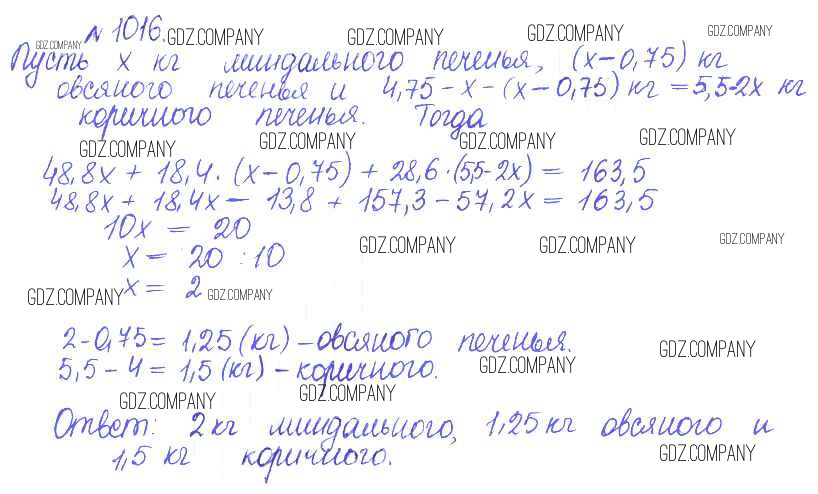 № 1016. GDZ.COMPANY GDZ.COMPANY GDZ.COMPANY GDZ.COMPANY
GDZ.COMPANY
Пусть x кг миндального печенья, (x-0,75) кг
овсяного печенья и 4,75 - x - (x - 0,75) кг = 5,5-2x кг
коричного печенья. Тогда
GDZ.COMPANY GDZ.COMPANY GDZ.COMPANY GDZ.COMPANY
48,8x + 18,4 · (x - 0,75) + 28,6 · (5,5-2x) = 163,5
48,8x + 18,4x - 13,8 + 157,3 - 57,2x = 163,5
10x = 20
GDZ.COMPANY GDZ.COMPANY GDZ.COMPANY
x = 20 : 10
x = 2
GDZ.COMPANY GDZ.COMPANY
2-0,75 = 1,25 (кг) - овсяного печенья.
GDZ.COMPANY
5,5 - 4 = 1,5 (кг) - коричного.
GDZ.COMPANY
GDZ.COMPANY GDZ.COMPANY
Ответ: 2 кг миндального, 1,25 кг овсяного и
1,5 кг коричного.
GDZ.COMPANY